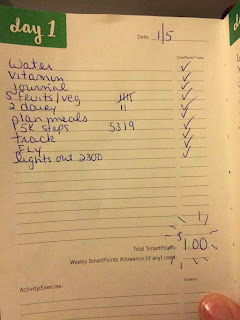 day 1
Date: 1/5
SmartPoints® value
Water ✓
Vitamin ✓
Journal ✓
5 fruits/veg 卌 ✓
2 dairy 11 ✓
plan meals ✓
5K steps 5319 ✓
track ✓
FLY ✓
lights out 2300 ✓
Total SmartPoints:
$1.00
Weekly SmartPoints Allowance (if any) used:
Activity/Exercise:
Duration